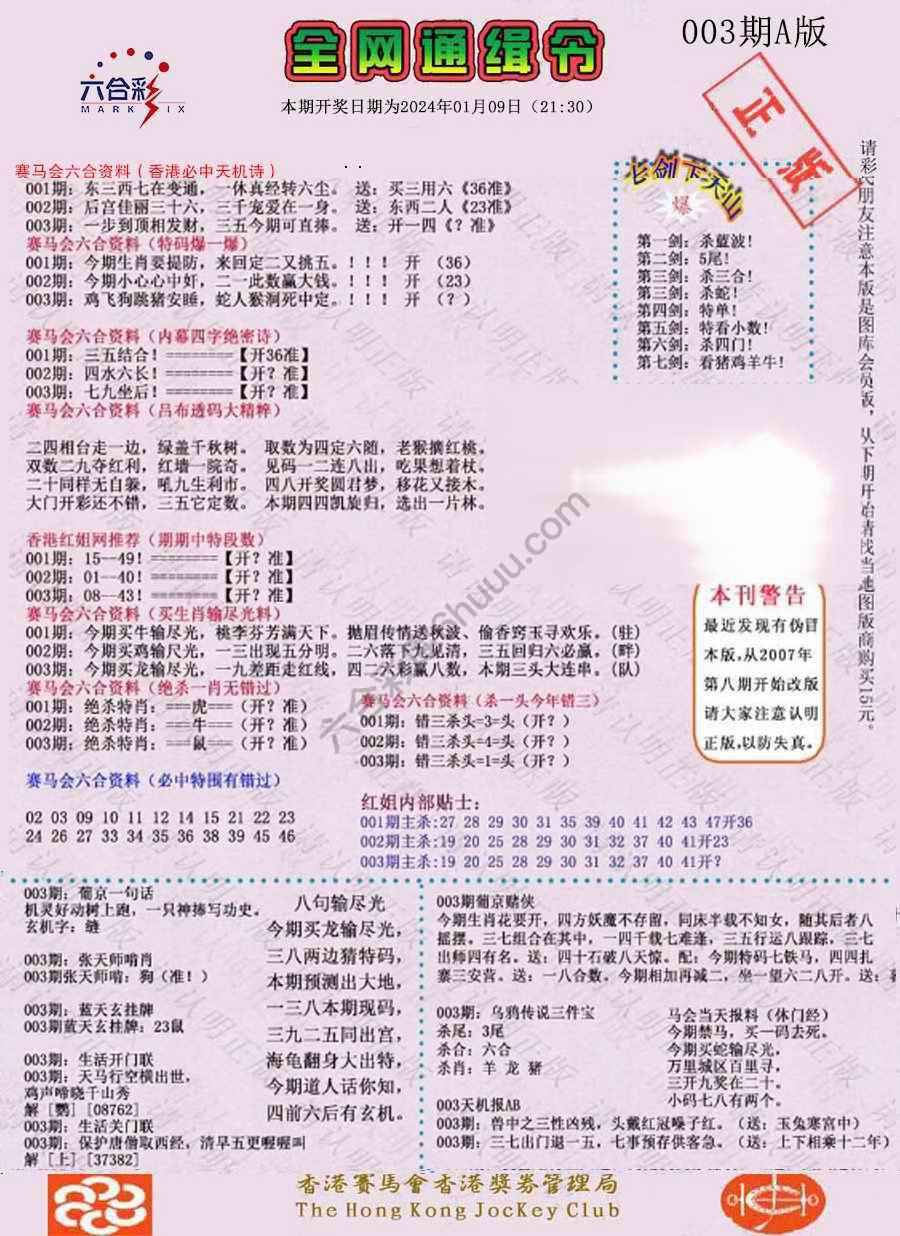 003期A版
全网通缉令
六合彩
MARK SIX
本期开奖日期为2024年01月09日（21:30）
正版
赛马会六合资料（香港必中天机诗）
001期：东三西七在变通，一休真经转六尘。 送：买三用六《36准》
002期：后宫佳丽三十六，三千宠爱在一身。 送：东西二人《23准》
003期：一步到顶相发财，三五今期可直捧。 送：开一四《？准》
赛马会六合资料（特码爆一爆）
001期：今期生肖要提防，来回定二又挑五。！！！ 开 （36）
002期：今期小心心中奸，二一此数赢大钱。！！！ 开 （23）
003期：鸡飞狗跳猪安睡，蛇人猴洞死中定。！！！ 开 （？）
七剑下天山
爆
第一剑：杀蓝波！
第二剑：5尾！
第三剑：杀三合！
第三剑：杀蛇！
第四剑：特单！
第五剑：特看小数！
第六剑：杀四门！
第七剑：看猪鸡羊牛！
赛马会六合资料（内幕四字绝密诗）
001期：三五结合！========【开36准】
002期：四水六长！========【开？准】
003期：七九坐后！========【开？准】
赛马会六合资料（吕布透码大精粹）
二四相台走一边，绿盖千秋树。 取数为四定六随，老猴摘红桃。
双数二九夺红利，红墙一院奇。 见码一二连八出，吃果想着杖。
二十同样无自躲，吼九生利市。 四八开奖圆君梦，移花又接木。
大门开彩还不错，三五它定数。 本期四四凯旋归，选出一片林。
香港红姐网推荐（期期中特段数）
001期：15--49！========【开？准】
002期：01--40！========【开？准】
003期：08--43！========【开？准】
赛马会六合资料（买生肖输尽光料）
001期：今期买牛输尽光，桃李芬芳满天下。抛眉传情送秋波、偷香窍玉寻欢乐。（驻）
002期：今期买鸡输尺光，一三出现五分明。二六落下九见清，三五回归六必赢。（畔）
003期：今期买龙输尽光，一九差距走红线，四二六彩赢八数，本期三头大连串。（队）
赛马会六合资料（绝杀一肖无错过）
001期：绝杀特肖：===虎===（开？准）
002期：绝杀特肖：===牛===（开？准）
003期：绝杀特肖：===鼠===（开？准）
赛马会六合资料（杀一头今年错三）
001期：错三杀头=3=头（开？）
002期：错三杀头=4=头（开？）
003期：错三杀头=1=头（开？）
赛马会六合资料（必中特围有错过）
02 03 09 10 11 12 14 15 21 22 23
24 26 27 33 34 35 36 38 39 45 46
红姐内部贴士：
001期主杀:27 28 29 30 31 35 39 40 41 42 43 47开36
002期主杀:19 20 25 28 29 30 31 32 37 40 41开23
003期主杀:19 20 25 28 29 30 31 32 37 40 41开?
本刊警告
最近发现有伪冒
本版,从2007年
第八期开始改版
请大家注意认明
正版,以防失真。
请彩民朋友注意本版是图库会员版，从下期开始请找当地图版商购买15元。
003期：葡京一句话
机灵好动树上跑，一只神捧写功史。
玄机字：缝
003期：张天师啃肖
003期张天师啃：狗（准！）
003期：蓝天玄挂牌
003期蓝天玄挂牌：23鼠
003期：生活开门联
003期：天马行空横出世，
鸡声啼晓千山秀
解［鹦］[08762]
003期：生活关门联
003期：保护唐僧取西经，清早五更喔喔叫
解［上］[37382]
八句输尽光
今期买龙输尽光，
三八两边猜特码，
本期预测出大地，
一三八本期现码，
三九二五同出宫，
海龟翻身大出特，
今期道人话你知，
四前六后有玄机。
003期葡京赌侠
今期生肖花要开，四方妖魔不存留，同床半载不知女，随其后者八
摇摆。三七组合在其中，一四千载七难逢，三五行运八跟踪，三七
出师四有名。送：四十石破八天惊。配：今期特码七铁马，四四扎
寨三安营。送：一八合数。今期相加再减二，坐一望六二八开。送：
003期：乌鸦传说三件宝
杀尾：3尾
杀合：六合
杀肖：羊 龙 猪
马会当天报料（休门经）
今期禁马，买一码去死。
今期买蛇输尽光，
万里城区百里寻，
三开九奖在二十。
小码七八有两个。
003天机报AB
003期：兽中之三性凶残，头戴红冠嗓子红。（送：玉兔寒宫中）
003期：三七出门退一五，七事预存供客急。（送：上下相乘十二年）
香港賽馬會香港獎券管理局
The Hong Kong Jockey Club